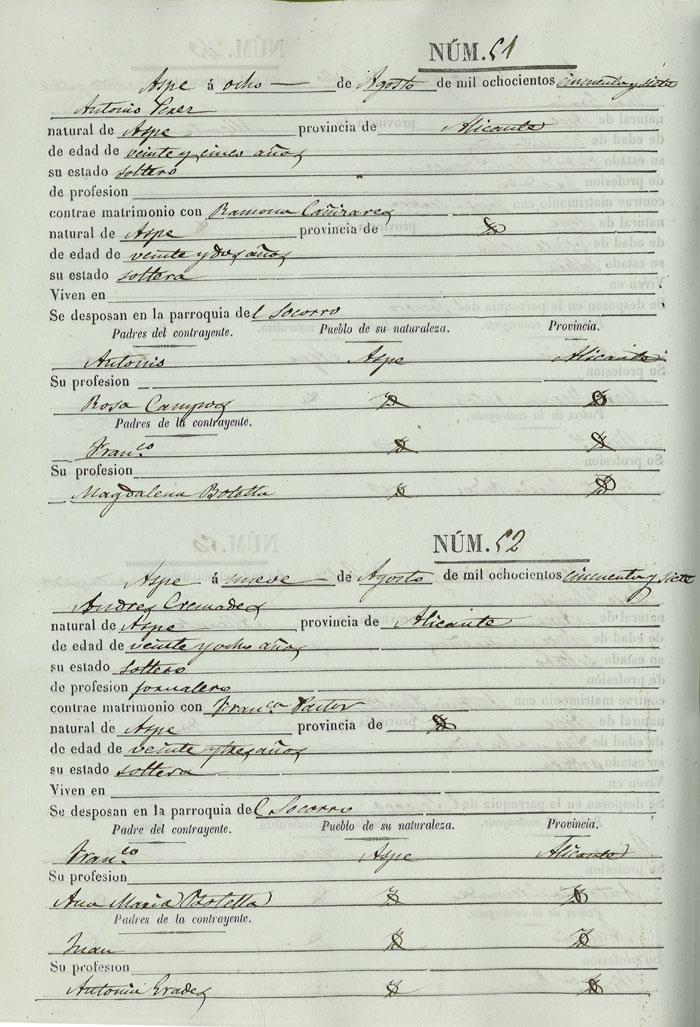 NÚM. 51
Aspe á ocho de Agosto de mil ochocientos cincuenta y siete
Antonio Perez
natural de Aspe provincia de Alicante
de edad de veinte y cinco años
su estado soltero
de profesion
contrae matrimonio con Ramona Cañizares
natural de Aspe provincia de
de edad de veinte y dos años
su estado soltera
Viven en
Se desposan en la parroquia del Socorro
Padres del contrayente. Pueblo de su naturaleza. Provincia.
Antonio Aspe Alicante
Su profesion
Rosa Campos
Padres de la contrayente.
Fran.co
Su profesion
Magdalena Botella
NÚM. 52
Aspe á nueve de Agosto de mil ochocientos cincuenta y siete
Andres Cremades
natural de Aspe provincia de Alicante
de edad de veinte y ocho años
su estado soltero
de profesion jornalero
contrae matrimonio con Fran.ca Pastor
natural de Aspe provincia de
de edad de veinte y tres años
su estado soltera
Viven en
Se desposan en la parroquia del Socorro
Padre del contrayente. Pueblo de su naturaleza. Provincia.
Fran.co Aspe Alicante
Su profesion
Ana Maria Botella
Padres de la contrayente.
Juan
Su profesion
Antonia Erades